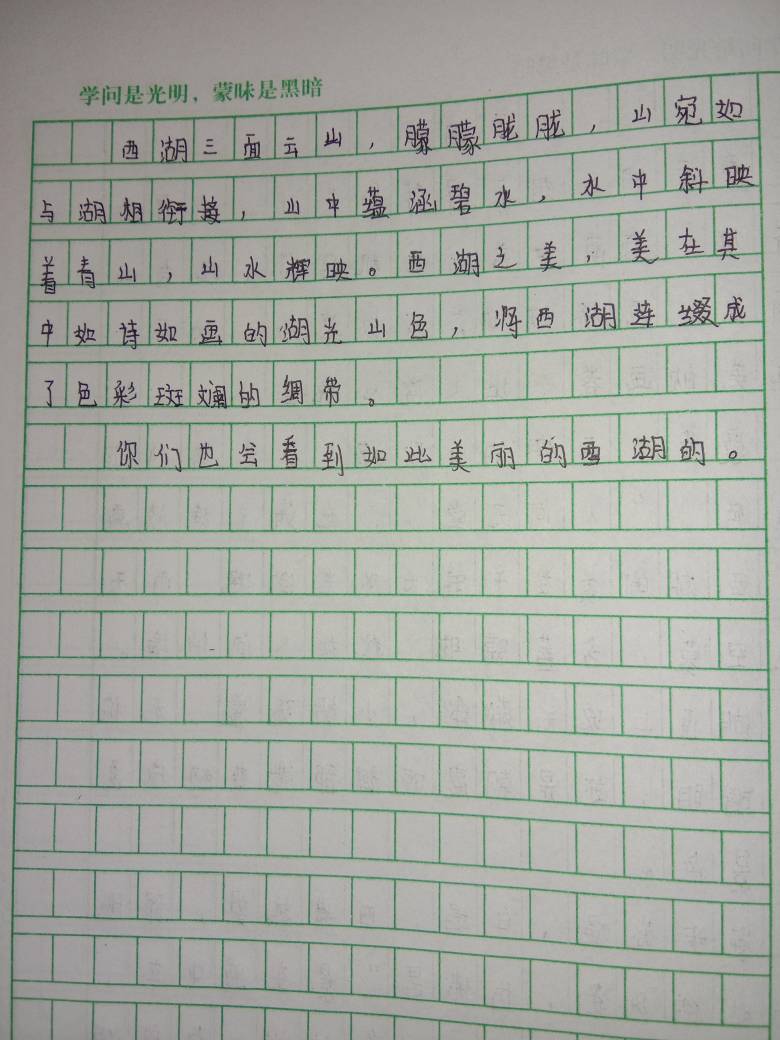 学问是光明，蒙昧是黑暗
西湖三面云山，朦朦胧胧，山宛如
与湖相衔接，山中蕴涵碧水，水中斜映
着青山，山水辉映。西湖之美，美在其
中如诗如画的湖光山色，将西湖连缀成
了色彩斑斓的绸带。
你们也会看到如此美丽的西湖的。